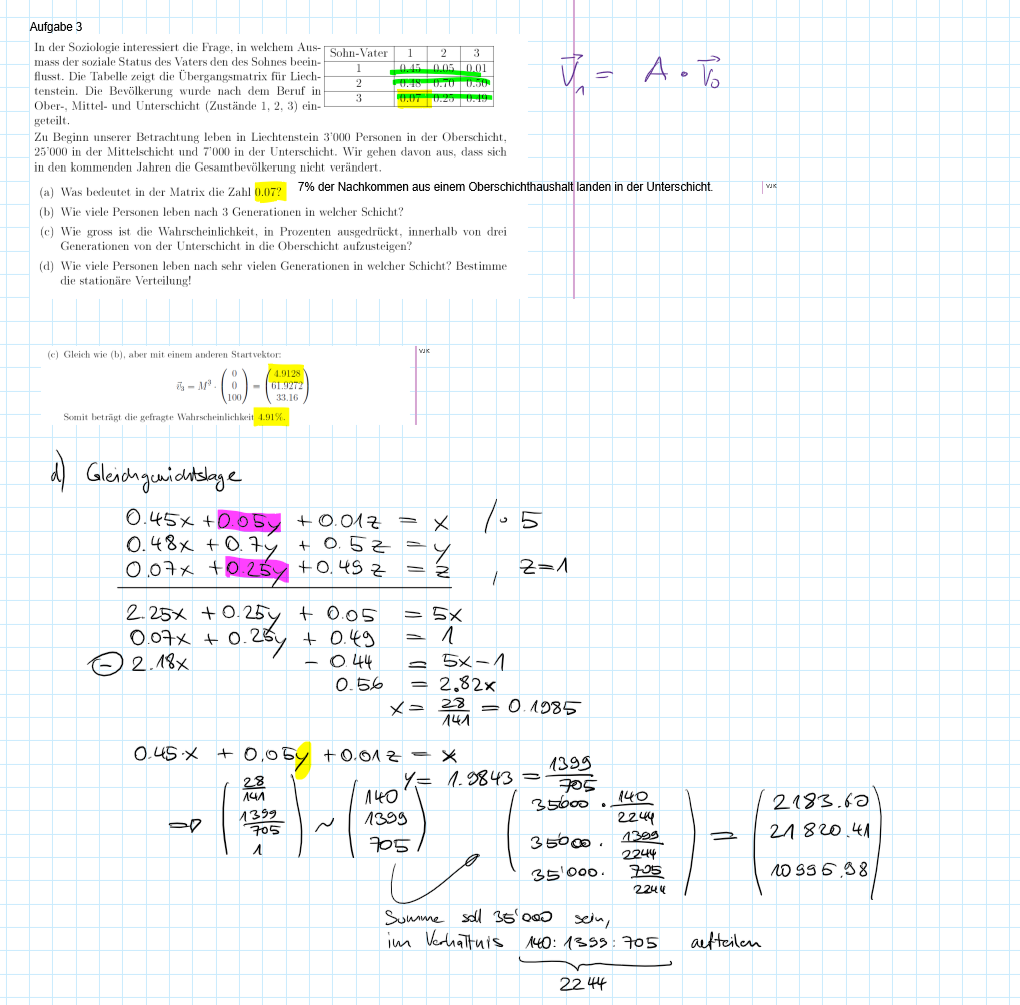 Aufgabe 3
In der Soziologie interessiert die Frage, in welchem Aus-
mass der soziale Status des Vaters den des Sohnes beein-
flusst. Die Tabelle zeigt die Übergangsmatrix für Liech-
tenstein. Die Bevölkerung wurde nach dem Beruf in
Ober-, Mittel- und Unterschicht (Zustände 1, 2, 3) ein-
geteilt.
Sohn-Vater 1 2 3
1 0.45 0.05 0.01
2 0.48 0.70 0.50
3 0.07 0.25 0.49
V⃗₁ = A · V⃗₀
Zu Beginn unserer Betrachtung leben in Liechtenstein 3'000 Personen in der Oberschicht,
25'000 in der Mittelschicht und 7'000 in der Unterschicht. Wir gehen davon aus, dass sich
in den kommenden Jahren die Gesamtbevölkerung nicht verändert.
(a) Was bedeutet in der Matrix die Zahl 0.07? 7% der Nachkommen aus einem Oberschichthaushalt landen in der Unterschicht. VJK
(b) Wie viele Personen leben nach 3 Generationen in welcher Schicht?
(c) Wie gross ist die Wahrscheinlichkeit, in Prozenten ausgedrückt, innerhalb von drei
Generationen von der Unterschicht in die Oberschicht aufzusteigen?
(d) Wie viele Personen leben nach sehr vielen Generationen in welcher Schicht? Bestimme
die stationäre Verteilung!
(c) Gleich wie (b), aber mit einem anderen Startvektor: VJK
v⃗₃ = M³ · (0 0 100) = (4.9128 61.9272 33.16)
Somit beträgt die gefragte Wahrscheinlichkeit 4.91%.
d) Gleichgewichtslage
0.45x + 0.05y + 0.01z = x /· 5
0.48x + 0.7y + 0.5z = y
0.07x + 0.25y + 0.49z = z , z=1
2.25x + 0.25y + 0.05 = 5x
0.07x + 0.25y + 0.49 = 1
⊖ 2.18x - 0.44 = 5x-1
0.56 = 2.82x
x = 28/141 = 0.1985
0.45·x + 0,05y + 0.01z = x
y = 1.9843 = 1399/705
⇒ (28/141 1399/705 1) ~ (140 1399 705)
(35'000 · 140/2244 35'000 · 1399/2244 35'000 · 705/2244) = (2183.60 21820.41 10995.98)
Summe soll 35'000 sein,
im Verhältnis 140:1399:705 aufteilen
2244